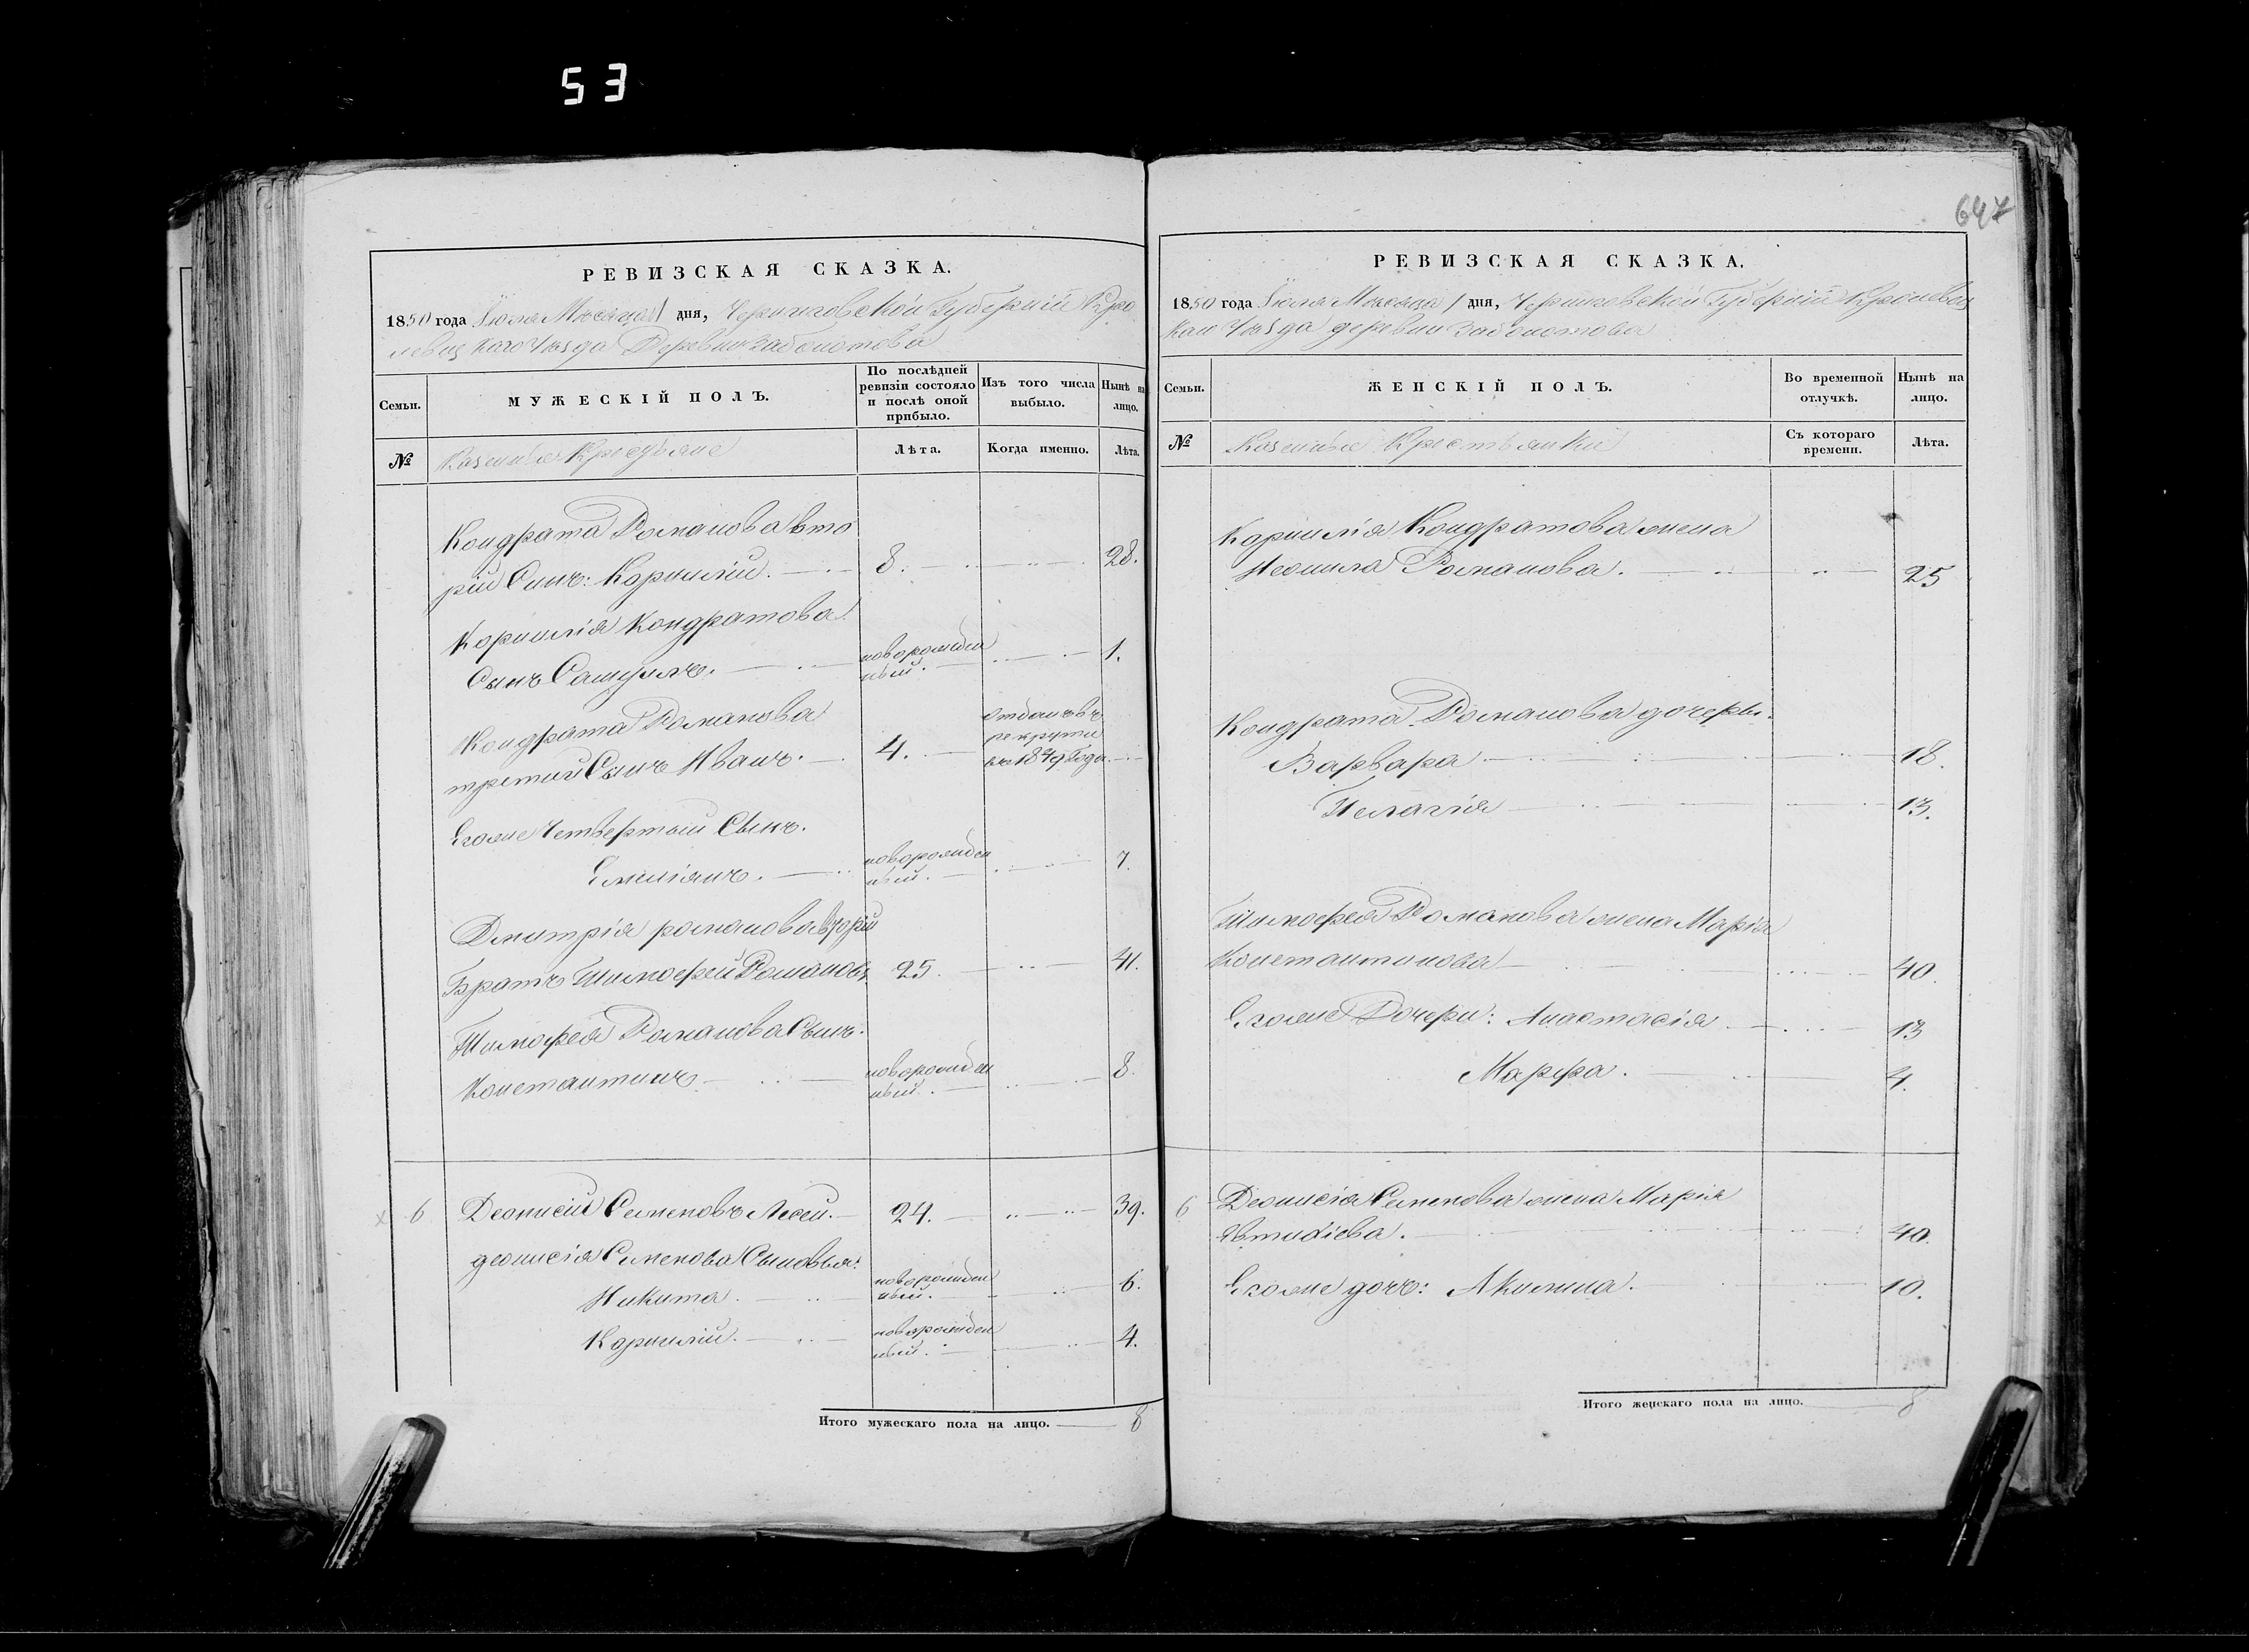 53
647
РЕВИЗСКАЯ СКАЗКА.
1850 года Іюля Месяца 1 дня, Черниговской Губерніи Кро
левецкаго Уезда Деревни Заболотова
Семьи.
МУЖЕСКІЙ ПОЛЪ.
По послѣдней
ревизіи состояло
и послѣ оной
прибыло.
Изъ того числа
выбыло.
Нынѣ на
лицо.
№
Казенные Крестьяне
Лѣта.
Когда именно.
Лѣта.
Кондрата Романова вто
рій Сынъ: Корнилій. 8. 28.
Корнилія Кондратова
Сынъ Самуилъ. новорожден
ный. 1.
Кондрата Романова
третий Сынъ Иванъ. 4. отданъ въ
рекруты
въ 1849 Году
Егоже Четвертый Сынъ.
Емиліянъ. новорожден
ный. 7.
Дмитрія романова вторій
Братъ Тимофей Романовъ. 25. 41.
Тимофея Романова Сынъ.
Константинъ новорожден
ный. 8.
6 Деонисій Семеновъ 24. 39.
деонисія Семенова Сыновья:
Никита. новорожден
ный. 6.
Корнилій. новорожден
ный. 4.
Итого мужескаго пола на лицо. 8
РЕВИЗСКАЯ СКАЗКА.
1850 года Іюля Месяца 1 дня, Черниговской Губерніи Кролевец
каго Уезда деревни Заболотова
Семьи.
ЖЕНСКІЙ ПОЛЪ.
Во временной
отлучкѣ.
Нынѣ на
лицо.
№
Казенные Крестьянки
Съ котораго
времени.
Лѣта.
Корнилія Кондратова жена
Неонила Романова. 25
Кондрата Романова дочери.
Варвара 18.
Пелагія 13.
Тимофея Романова жена Марія
Константинова 40.
Егоже Дочери: Анастасія 13
Марфа. 4.
6 Деонисія Семенова жена Марія
Евтихіева. 40.
Егоже дочь: Акилина. 10.
Итого женскаго пола на лицо. 8